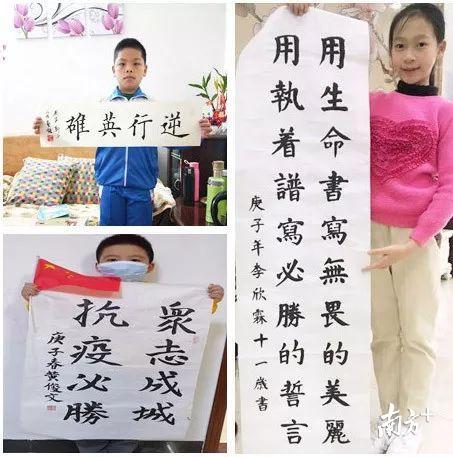 逆行英雄
衆志成城
抗疫必勝
庚子春黄俊文
用生命書寫無畏的美麗
用執着譜寫必勝的誓言
庚子年李欣霖十一歲書
南方+